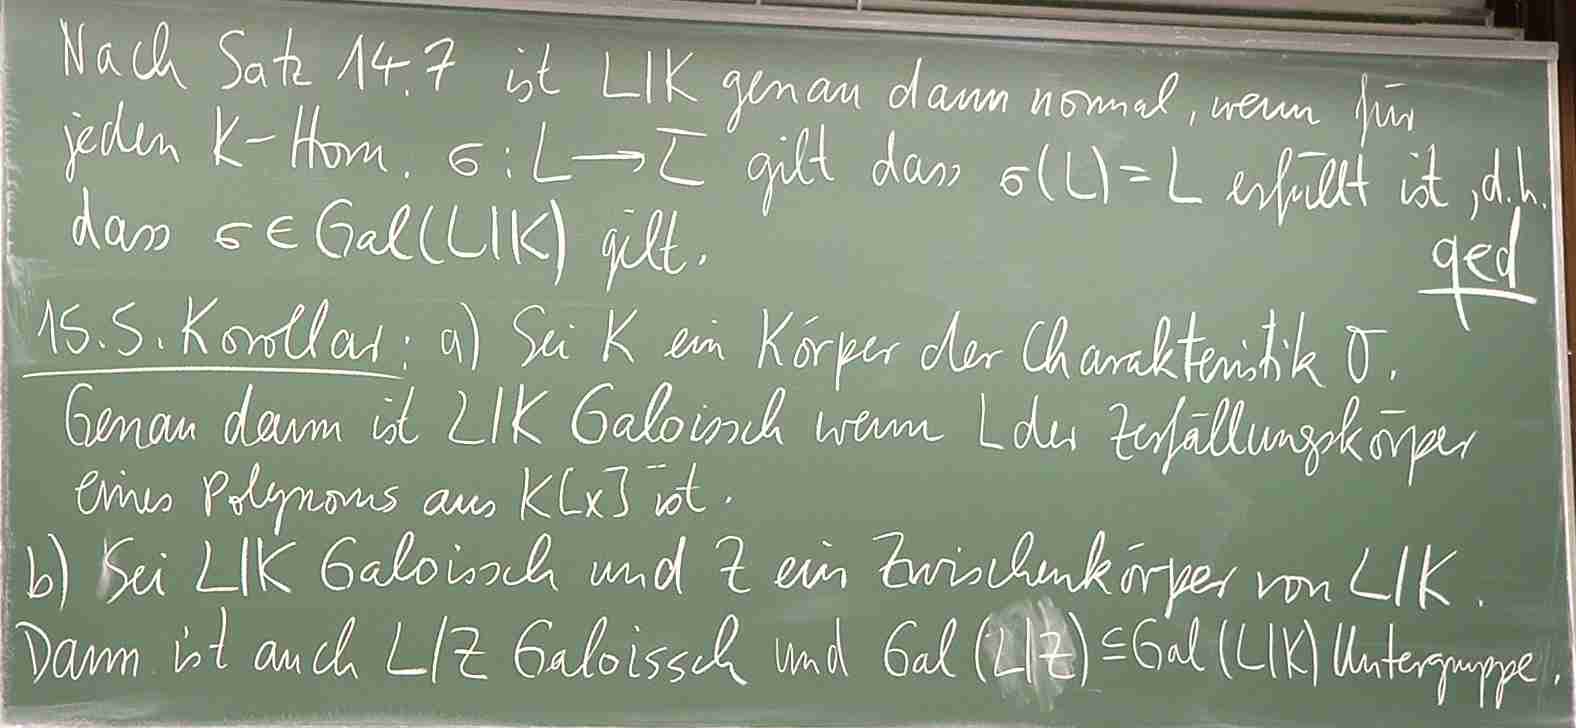 Nach Satz 14.7 ist L|K genau dann normal, wenn für
jeden K-Hom. σ: L → L̅ gilt dass σ(L) = L erfüllt ist, d.h.
dass σ ∈ Gal(L|K) gilt.
qed
15.5. Korollar: a) Sei K ein Körper der Charakteristik 0.
Genau dann ist L|K Galoissch wenn L der Zerfällungskörper
eines Polynoms aus K[x] ist.
b) Sei L|K Galoissch und Z ein Zwischenkörper von L|K.
Dann ist auch L|Z Galoissch und Gal(L|Z) ⊆ Gal(L|K) Untergruppe.